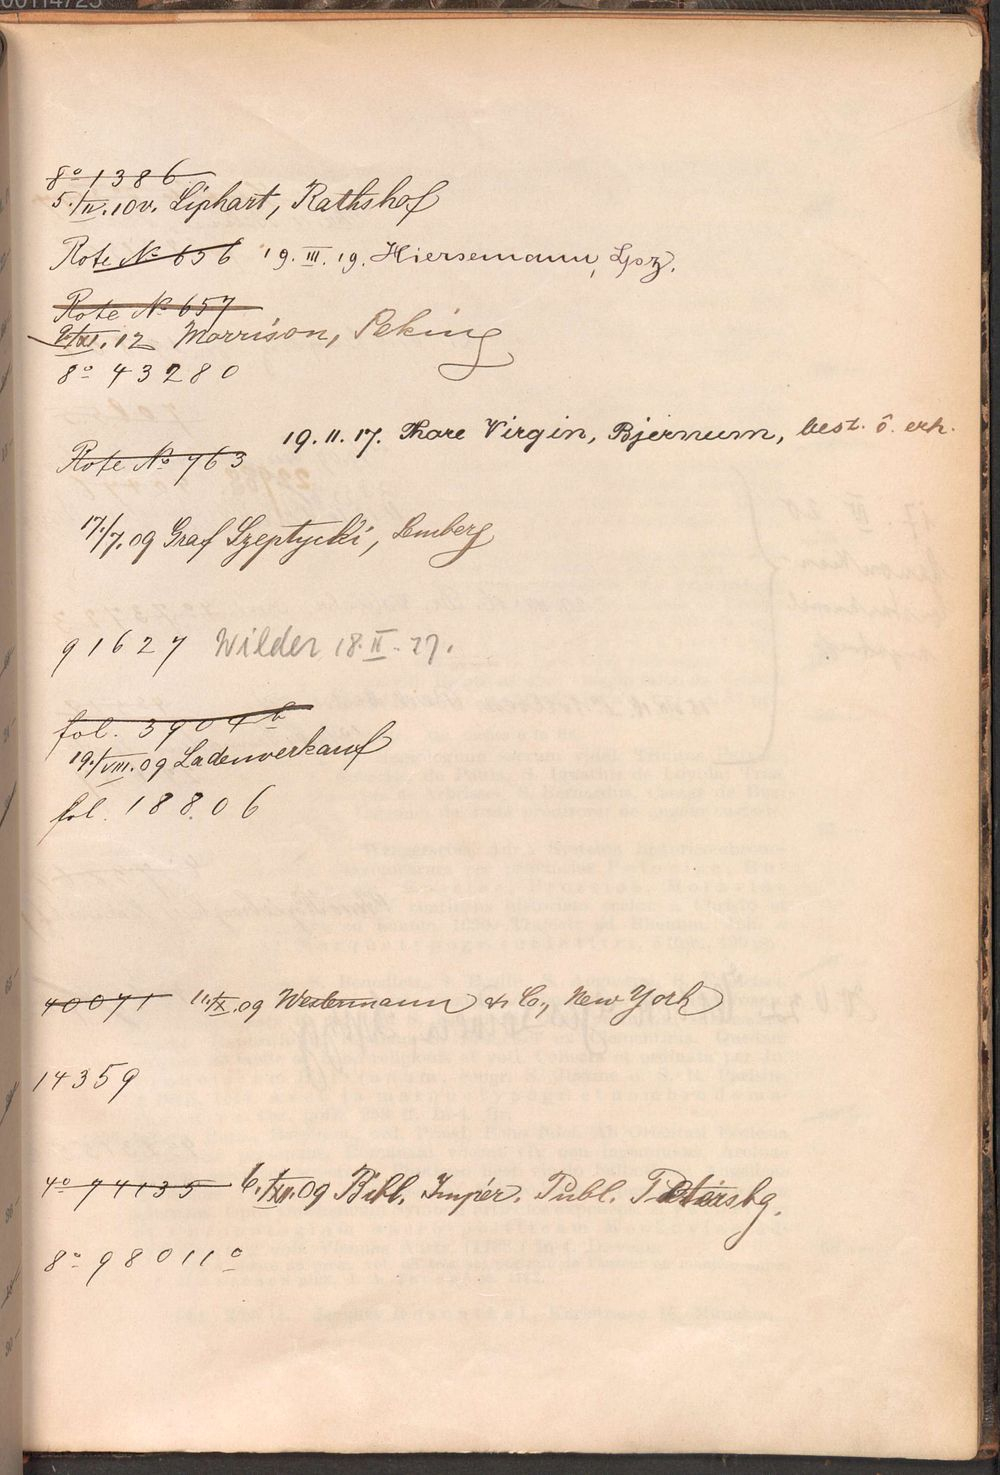 8º 1386
5./IV.10 v. Liphart, Rathshof
Rote Nº 656 19. III. 19. Hiersemann, Lpz.
Rote Nº 657
12 Morrison, Peking
8º 43280
19. 11. 17. Thore Virgin, Bjernum, best. ö. erh.
Rote Nº 763
17./7. 09 Graf Szeptycki, Lemberg
91627 Wilder 18. II. 27.
fol. 3904b
19./VIII. 09 Ladenverkauf
fol. 18806
40071 11./X. 09 Westermann & C., New York
14359
4º 74135 6./XII. 09 Bibl. Impér. Publ. Petersbg.
8º 98011º